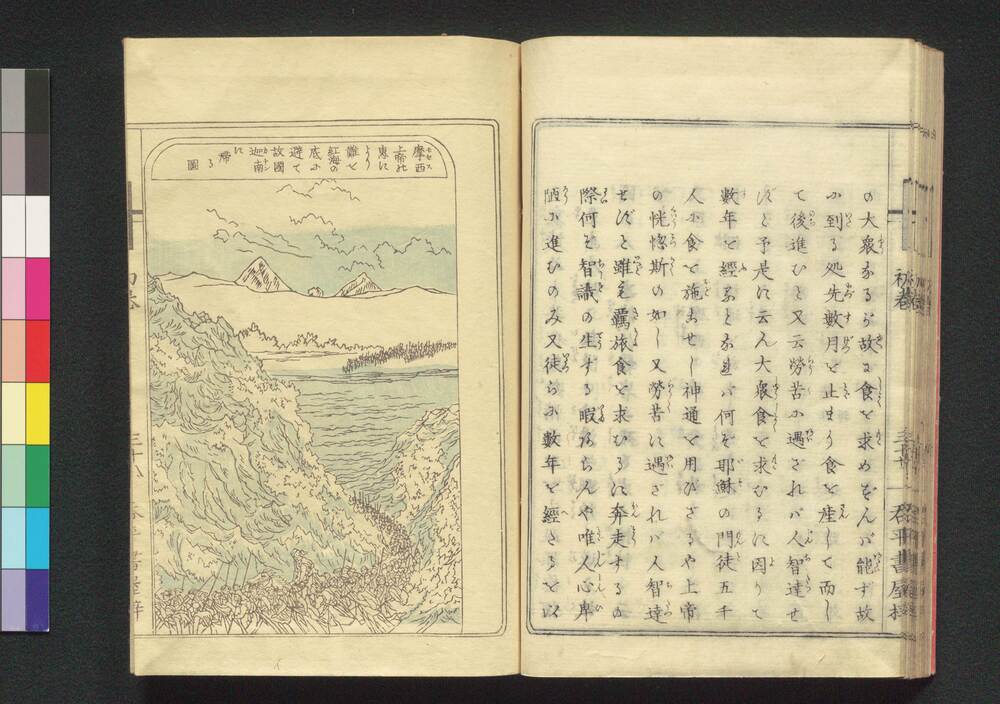 の大衆なるが故に食を求めをんバ能ず故
に到る処先數月を止まり食を産して而し
て後進むと又云勞苦に遇ざれバ人智達せ
ずと予是に云ん大衆食を求むるに因りて
數年を經るとなれバ何ぞ耶穌の門徒五千
人に食を施こせし神通を用ひざるや上帝
の恍惚斯の如し又勞苦に遇ざれバ人智達
せずと雖も羈旅食を求むるに奔走するの
際何ぞ智識の生する暇あらんや唯人心卑
陋に進むのみ又徒らに數年を經さるを以
初巻
摩西
上帝の
恵に
より
難を
紅海の
底に
避て
故國
迦南
に
帰る
圖